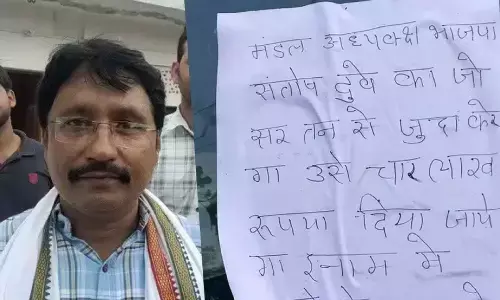 मंडल अध्पक्ष भाजपा
संतोष दुवे का जो
सर तन से जुदा करे
गा उसे चार लाख
रूपपा दिया जापे
गा इनाम मे